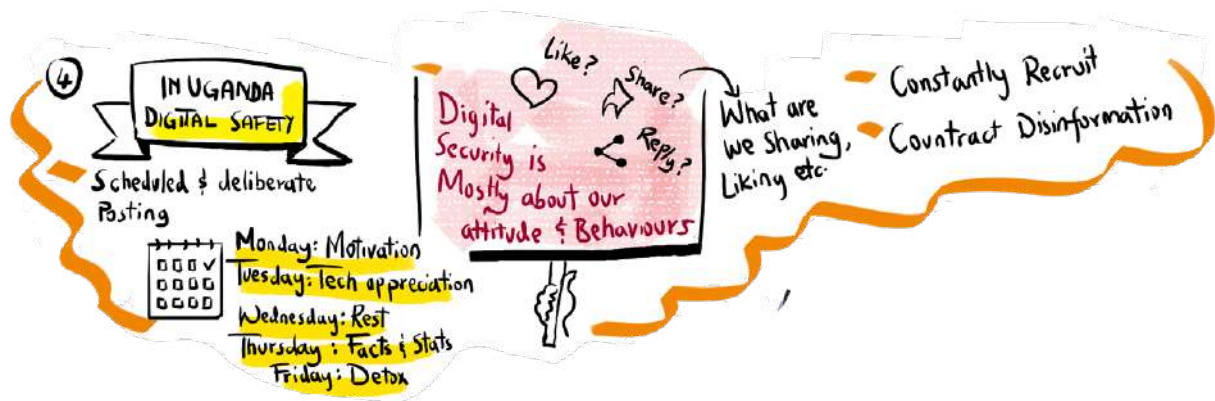 4
IN UGANDA
DIGITAL SAFETY
Scheduled & deliberate
Posting
Monday: Motivation
Tuesday: Tech appreciation
Wednesday: Rest
Thursday: Facts & Stats
Friday: Detox
Like?
Share?
Reply?
Digital
Security is
Mostly about our
attitude & Behaviours
What are
we Sharing,
Liking etc.
Constantly Recruit
Countract Disinformation